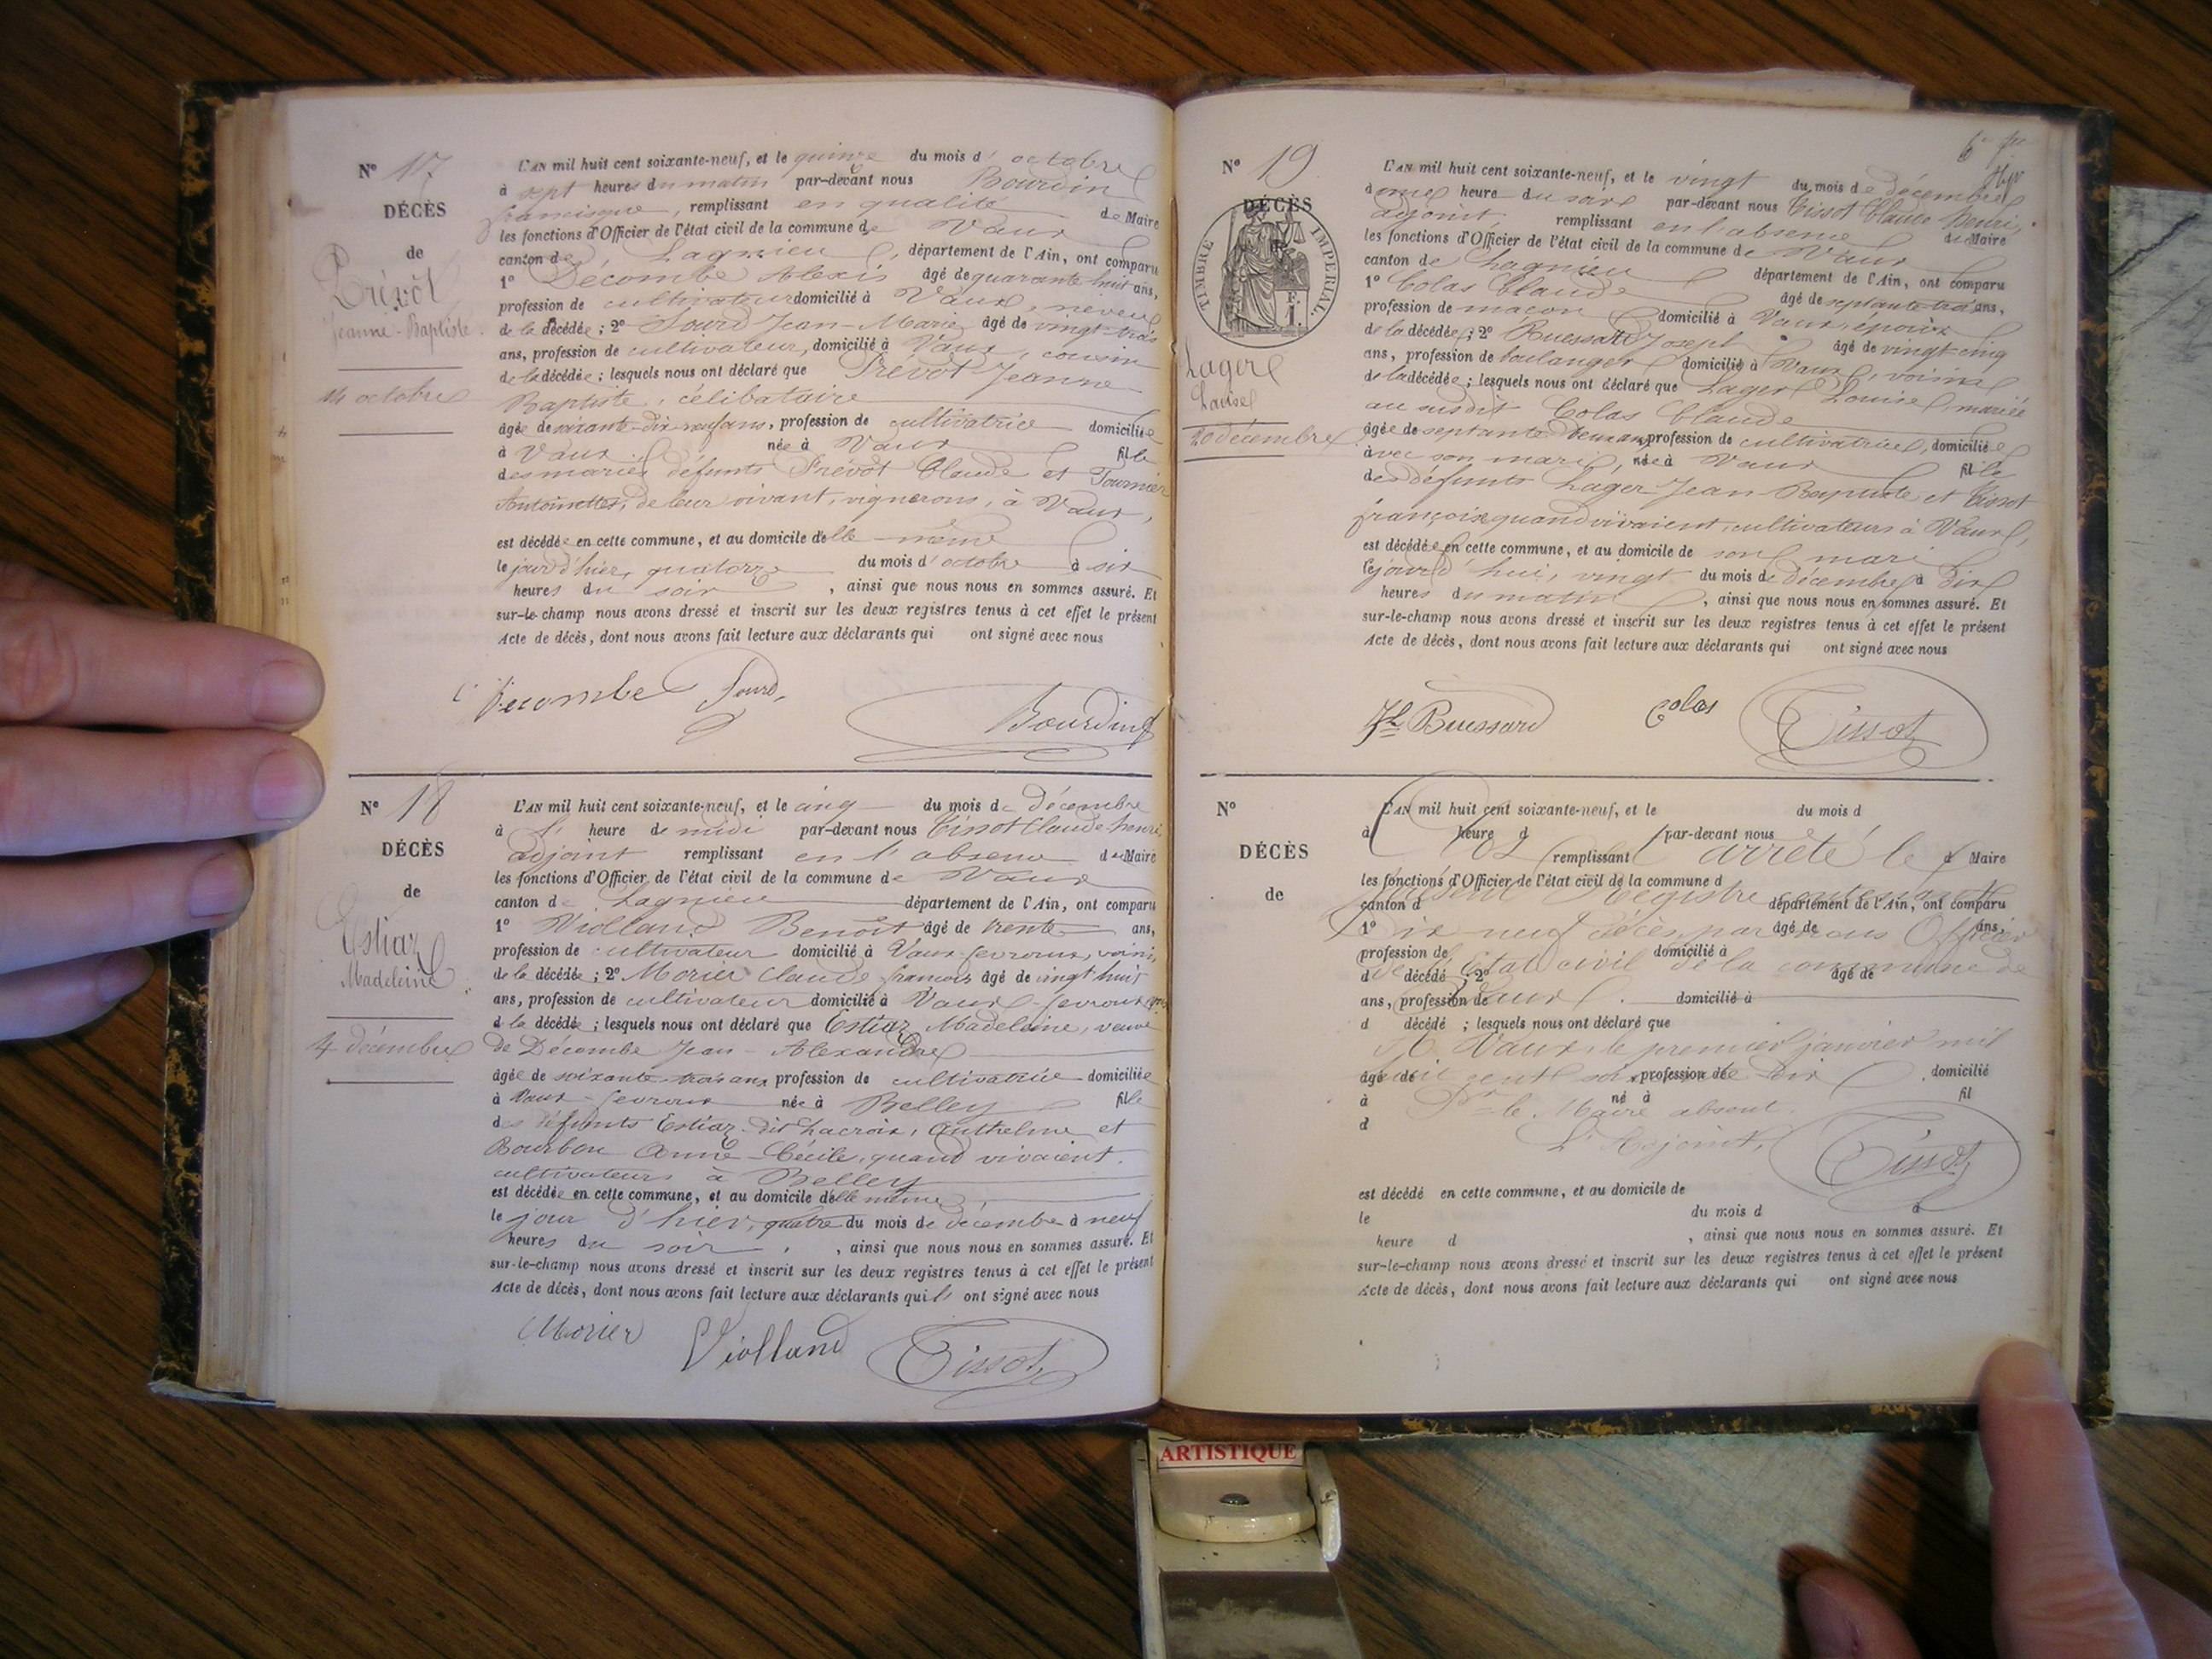 N° 17
DÉCÈS
de
Prévôt
Jeanne-Baptiste
14 octobre
L'AN mil huit cent soixante-neuf, et le quinze du mois d'octobre
à sept heures du matin par-devant nous Bourdin
francisque, remplissant en qualité de Maire
les fonctions d'Officier de l'état civil de la commune de Vaux
canton de Lagnieu, département de l'Ain, ont comparu
1° Décombe Alexis âgé de quarante huit ans,
profession de cultivateur domicilié à Vaux, neveu
de la décédée ; 2° Sourd Jean-Marie âgé de vingt-trois
ans, profession de cultivateur, domicilié à Vaux, cousin
de la décédée ; lesquels nous ont déclaré que Prévôt Jeanne
Baptiste, célibataire
âgée de soixante-dix-neuf ans, profession de cultivatrice domiciliée
à Vaux née à Vaux fille
des mariés défunts Prévôt Claude et Fournier
Antoinette, de leur vivant, vignerons, à Vaux,
est décédée en cette commune, et au domicile d'elle-même
le jour d'hier, quatorze du mois d'octobre à six
heures du soir, ainsi que nous nous en sommes assuré. Et
sur-le-champ nous avons dressé et inscrit sur les deux registres tenus à cet effet le présent
Acte de décès, dont nous avons fait lecture aux déclarants qui ont signé avec nous
Decombe Sourd Bourdin
N° 18
DÉCÈS
de
Estiaz
Madeleine
4 décembre
L'AN mil huit cent soixante-neuf, et le cinq du mois de décembre
à l' heure de midi par-devant nous Tissot Claude henri
adjoint remplissant en l'absence de Maire
les fonctions d'Officier de l'état civil de la commune de Vaux
canton de Lagnieu département de l'Ain, ont comparu
1° Violland Benoît âgé de trente ans,
profession de cultivateur domicilié à Vaux-fevroux, voisin
de la décédée ; 2° Morier Claude françois âgé de vingt huit
ans, profession de cultivateur domicilié à Vaux-fevroux
d la décédée ; lesquels nous ont déclaré que Estiaz Madeleine, veuve
de Décombe Jean-Alexandre
âgée de soixante-trois ans, profession de cultivatrice domiciliée
à Vaux-fevroux née à Belley fille
des défunts Estiaz dit Lacroix, Anthelme et
Bourbon Anne-Cécile, quand vivaient
cultivateurs à Belley
est décédée en cette commune, et au domicile d'elle même,
le jour d'hier, quatre du mois de décembre à neuf
heures du soir, ainsi que nous nous en sommes assuré. Et
sur-le-champ nous avons dressé et inscrit sur les deux registres tenus à cet effet le présent
Acte de décès, dont nous avons fait lecture aux déclarants qui ont signé avec nous
Morier Violland Tissot
N° 19
DÉCÈS
TIMBRE IMPERIAL
Lager
Louise
20 décembre
L'AN mil huit cent soixante-neuf, et le vingt du mois de décembre
à une heure du soir par-devant nous Tissot Claude Henri,
adjoint remplissant en l'absence de Maire
les fonctions d'Officier de l'état civil de la commune de Vaux
canton de Lagnieu département de l'Ain, ont comparu
1° Colas Claude âgé de septante-trois ans,
profession de maçon domicilié à Vaux, époux
de la décédée ; 2° Buessard Joseph âgé de vingt-cinq
ans, profession de boulanger domicilié à Vaux, voisin
de la décédée ; lesquels nous ont déclaré que Lager Louise, mariée
au susdit Colas Claude
âgée de septante deux ans, profession de cultivatrice, domiciliée
avec son mari, née à Vaux fille
des défunts Lager Jean-Baptiste et Tissot
françoise quand vivaient, cultivateurs à Vaux,
est décédée en cette commune, et au domicile de son mari
le jourd'hui, vingt du mois de décembre à dix
heures du matin, ainsi que nous nous en sommes assuré. Et
sur-le-champ nous avons dressé et inscrit sur les deux registres tenus à cet effet le présent
Acte de décès, dont nous avons fait lecture aux déclarants qui ont signé avec nous
Jh Buessard Colas Tissot
N°
DÉCÈS
de
L'AN mil huit cent soixante-neuf, et le du mois d
à heure d par-devant nous
arrêté le
remplissant d Maire
les fonctions d'Officier de l'état civil de la commune d
présent Registre contenant
canton d département de l'Ain, ont comparu
1° âgé de ans,
dix neuf décès par nous Officier
profession de domicilié à
de l'État civil de la commune de
d décédé ; 2° âgé de
Vaux
ans, profession de domicilié à
d décédé ; lesquels nous ont déclaré que
A Vaux, le premier janvier mil
huit cent soixante dix
âgé de profession de domicilié
à né à fil
Pr le Maire absent
d
L'Adjoint,
Tissot
est décédé en cette commune, et au domicile de
le du mois d à
heure d , ainsi que nous nous en sommes assuré. Et
sur-le-champ nous avons dressé et inscrit sur les deux registres tenus à cet effet le présent
Acte de décès, dont nous avons fait lecture aux déclarants qui ont signé avec nous
ARTISTIQUE